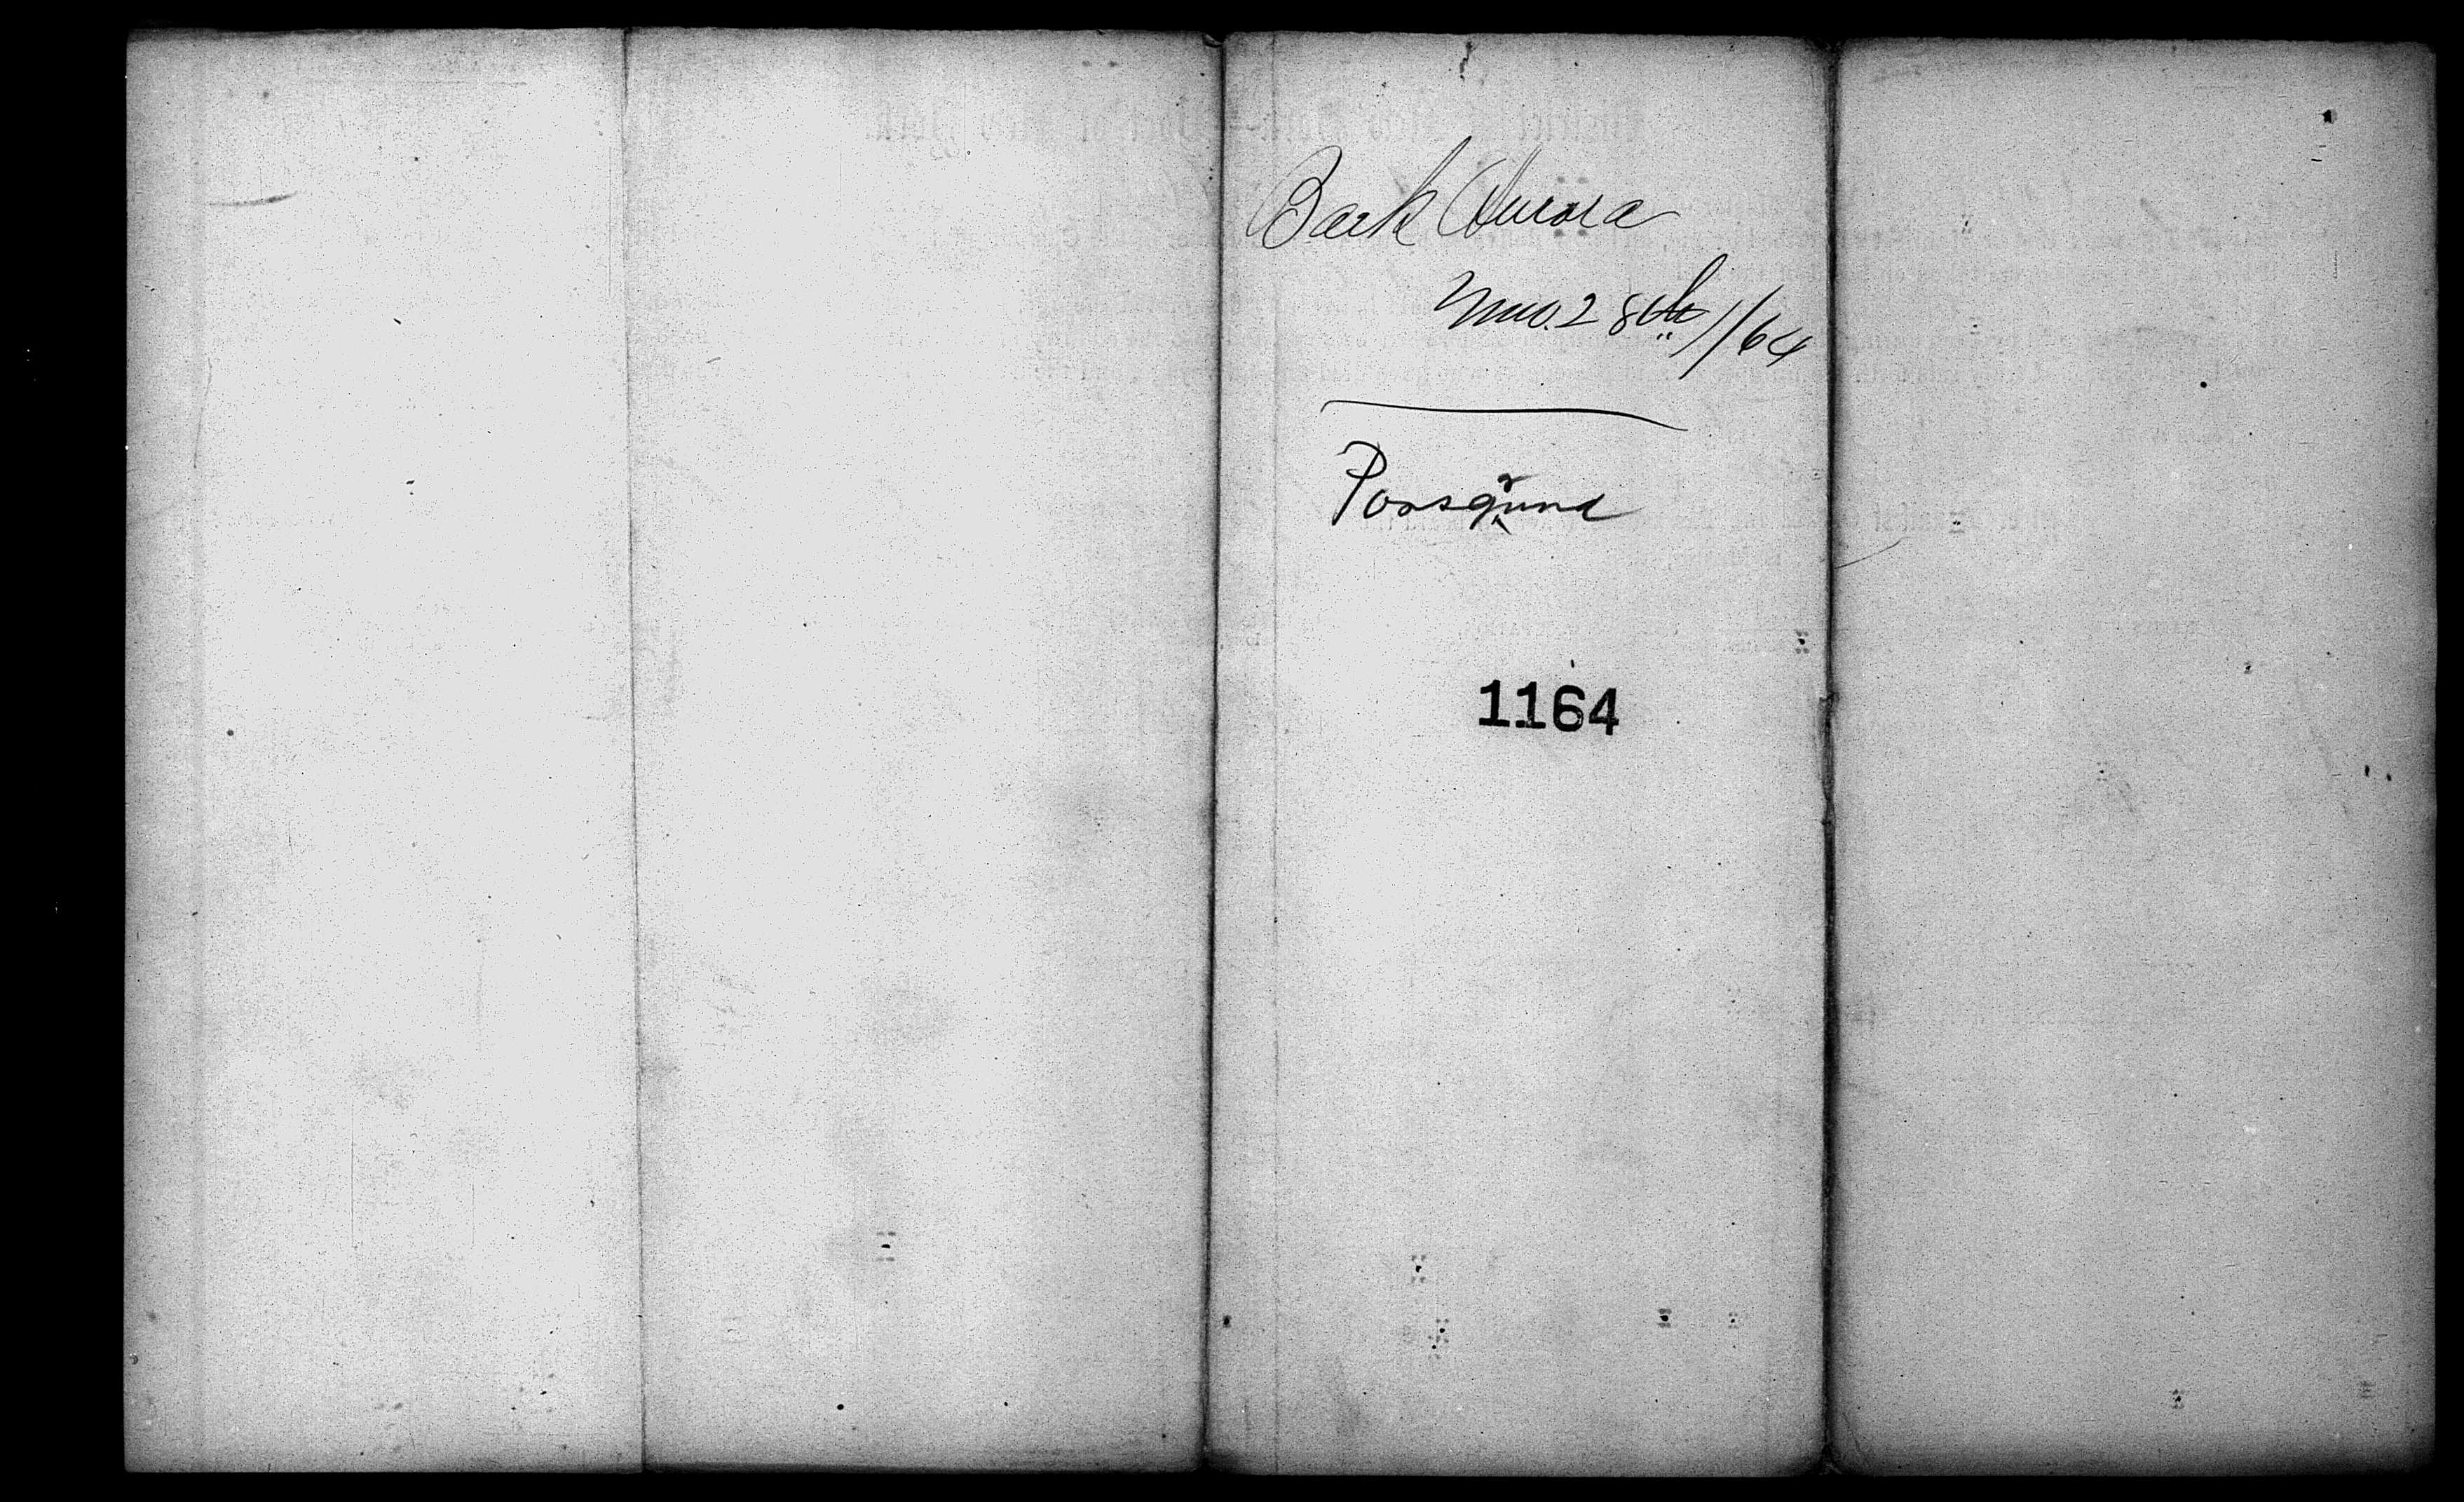 Bark Aurora
28th/64
Porsgrund
1164